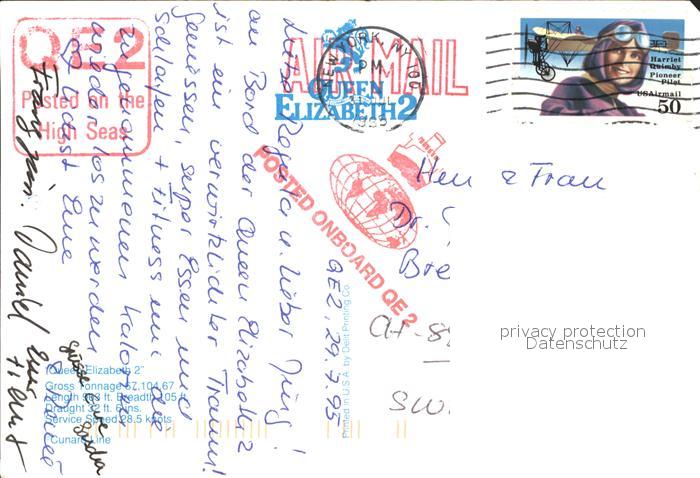 QE2
Posted on the
High Seas
AIR MAIL
QUEEN
ELIZABETH 2
NEW YORK, NY 100
PM
1995
Harriet
Quimby
Pioneer
Pilot
USAirmail
50
POSTED ONBOARD QE 2
QE2, 29.7.95
Liebe Rogeria u. lieber Jürg!
an Bord der Queen Elizabeth 2
ist ein verwirklichter Traum!
Geniessen, super Essen und
schlafen + Fitness um die
zugenommenen Kalorien
wieder loszuwerden
Herr & Frau
Dr.
Bre
CH-88
SW
privacy protection
Datenschutz
"Queen Elizabeth 2"
Gross Tonnage 67,104.67
Length 963 ft. Breadth 105 ft.
Draught 32 ft. 6 ins.
Service Speed 28.5 knots
Cunard Line
Printed in U.S.A. by Dexter Printing Co.